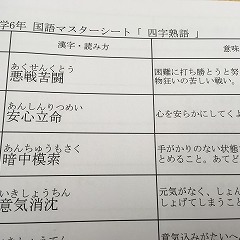 学6年 国語マスターシート「 四字熟語 」
漢字・読み方
意味
あくせんくとう
悪戦苦闘
困難に打ち勝とうと努
物狂いの苦しい戦い。
あんしんりつめい
安心立命
心を安らかにしてよ
あんちゅうもさく
暗中模索
手がかりのない状態
とめること。あてど
いきしょうちん
意気消沈
元気がなく、しょん
しょげてしまうこと
いきとうごう
意気込みがたいへ